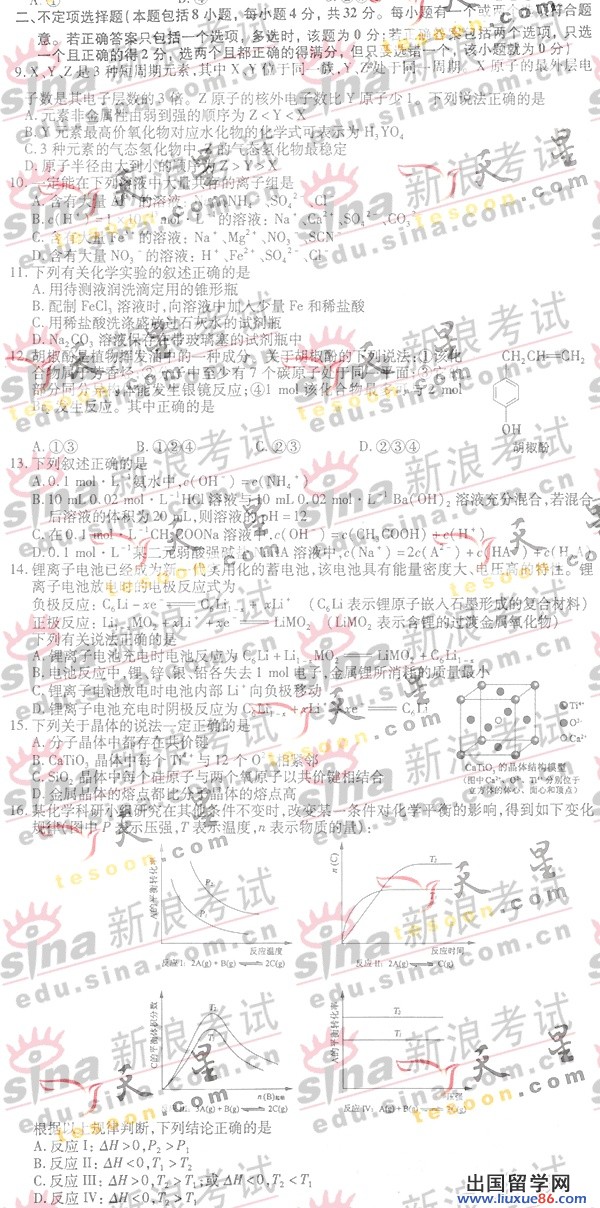 二、不定项选择题(本题包括8小题,每小题4分,共32分。每小题有一个或两个选项符合题
意。若正确答案只包括一个选项,多选时,该题为0分;若正确答案包括两个选项,只选
一个且正确的得2分,选两个且都正确的得满分,但只要选错一个,该小题就为0分)
9.X、Y、Z是3种短周期元素,其中X、Y位于同一族,Y、Z处于同一周期。X原子的最外层电
子数是其电子层数的3倍。Z原子的核外电子数比Y原子少1。下列说法正确的是
A.元素非金属性由弱到强的顺序为Z<Y<X
B.Y元素最高价氧化物对应水化物的化学式可表示为H₃YO₄
C.3种元素的气态氢化物中,Z的气态氢化物最稳定
D.原子半径由大到小的顺序为Z>Y>X
10.一定能在下列溶液中大量共存的离子组是
A.含有大量 的溶液: NH₄⁺、SO₄²⁻、Cl⁻
B.c(H⁺)=1×10 mol·L⁻¹的溶液:Na⁺、Ca²⁺、SO₄²⁻、CO₃²⁻
C.含有大量Fe 的溶液:Na⁺、Mg²⁺、NO₃⁻、SCN⁻
D.含有大量NO₃⁻的溶液:H⁺、Fe²⁺、SO₄²⁻、Cl⁻
11.下列有关化学实验的叙述正确的是
A.用待测液润洗滴定用的锥形瓶
B.配制FeCl₃溶液时,向溶液中加入少量Fe和稀盐酸
C.用稀盐酸洗涤盛放过石灰水的试剂瓶
D.Na₂CO₃溶液保存在带玻璃塞的试剂瓶中
12.胡椒酚是植物挥发油中的一种成分。关于胡椒酚的下列说法:①该化
合物属于芳香烃;②分子中至少有7个碳原子处于同一平面;③它的
部分同分异构体能发生银镜反应;④1 mol该化合物最多可与2 mol
发生反应。其中正确的是
CH₂CH═CH₂
OH
胡椒酚
A.①③ B.①②④ C.②③ D.②③④
13.下列叙述正确的是
A.0.1 mol·L⁻¹氨水中,c(OH⁻)=c(NH₄⁺)
B.10 mL 0.02 mol·L⁻¹HCl溶液与10 mL 0.02 mol·L⁻¹Ba(OH)₂溶液充分混合,若混合
后溶液的体积为20 mL,则溶液的pH=12
C.在0.1 mol·L⁻¹CH₃COONa溶液中,c(OH⁻)=c(CH₃COOH)+c(H⁺)
D.0.1 mol·L⁻¹某二元弱酸强碱盐NaHA溶液中,c(Na⁺)=2c(A²⁻)+c(HA⁻)+c(H₂A)
14.锂离子电池已经成为新一代实用化的蓄电池,该电池具有能量密度大、电压高的特性。锂
离子电池放电时的电极反应式为
负极反应:C₆Li-xe⁻═C₆Li₁₋ₓ+xLi⁺ (C₆Li表示锂原子嵌入石墨形成的复合材料)
正极反应:Li₁₋ₓMO₂+xLi⁺+xe⁻═LiMO₂ (LiMO₂表示含锂的过渡金属氧化物)
下列有关说法正确的是
A.锂离子电池充电时电池反应为C₆Li+Li₁₋ₓMO₂═LiMO₂+C₆Li₁₋ₓ
B.电池反应中,锂、锌、银、铅各失去1 mol电子,金属锂所消耗的质量最小
C.锂离子电池放电时电池内部Li⁺向负极移动
D.锂离子电池充电时阴极反应为C₆Li₁₋ₓ+xLi⁺+xe⁻═C₆Li
15.下列关于晶体的说法一定正确的是
A.分子晶体中都存在共价键
B.CaTiO₃晶体中每个Ti⁴⁺与12个O²⁻相紧邻
C.SiO₂晶体中每个硅原子与两个氧原子以共价键相结合
D.金属晶体的熔点都比分子晶体的熔点高
Ti⁴⁺
O²⁻
Ca²⁺
CaTiO₃的晶体结构模型
(图中Ca²⁺、O²⁻、Ti⁴⁺分别位于
立方体的体心、面心和顶点)
16.某化学科研小组研究在其他条件不变时,改变某一条件对化学平衡的影响,得到如下变化
规律(图中P表示压强,T表示温度,n表示物质的量):
A的平衡转化率
P₂
P₁
反应温度
反应I:2A(g)+B(g)⇌2C(g)
n(C)
T₂
反应时间
反应II:2A(g) 2C(g)
C的平衡体积分数
T₂
T₁
n(B)起始
3A(g)+B(g)⇌2C(g)
A的平衡转化率
T₂
T₁
压强
反应IV:A(g)+B(g)
根据以上规律判断,下列结论正确的是
A.反应I:ΔH>0,P₂>P₁
B.反应II:ΔH<0,T₁>T₂
C.反应III:ΔH>0,T₂>T₁;或ΔH<0,T₂<T₁
D.反应IV:ΔH<0,T₂>T₁
sina 新浪考试
edu.sina.com.cn
天星
tesoon.com
出国留学网
www.liuxue86.com